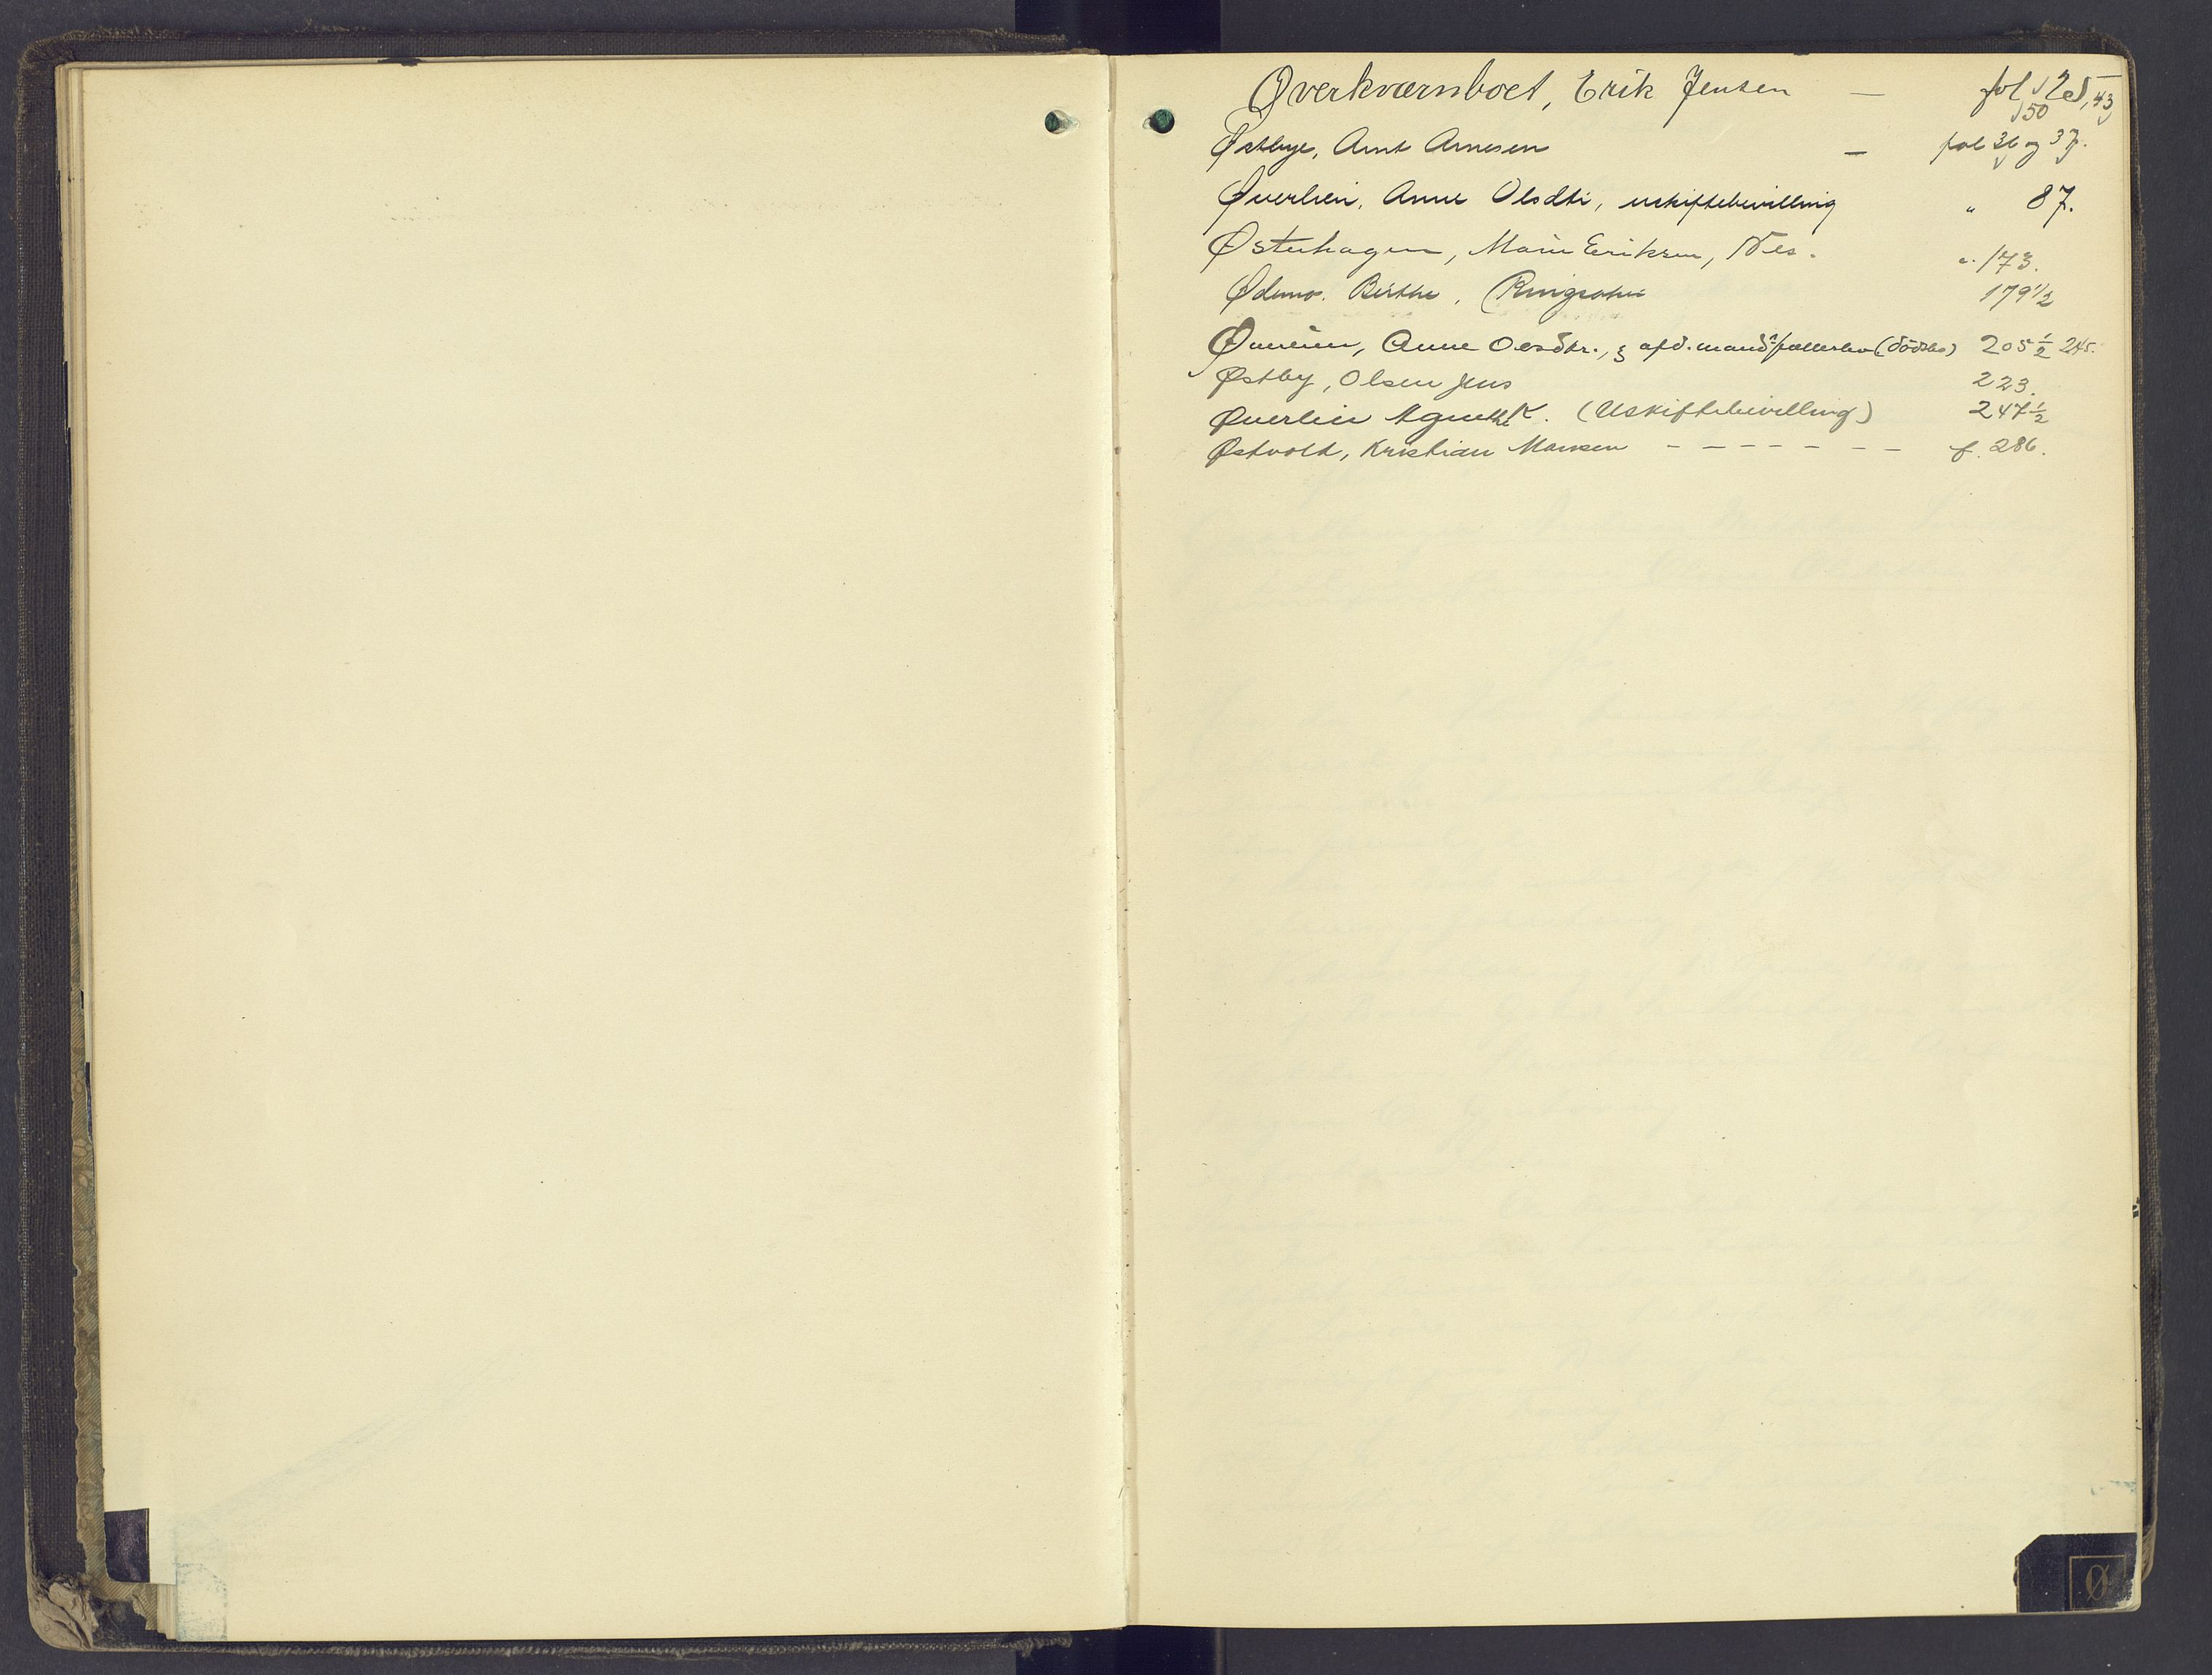 Øverkværnboet, Erik Jensen — fol 12 , 43
50
Østbye, Arnt Arnesen — fol 36 og 37.
Øverlien, Anne Olsdtr, uskiftebevilling " 87.
Østerhagen, Marie Eriksen, Nes. " 173.
Ødemo. Birthe, Ringsaker 179 1/2
Øverlien, Anne Olsdtr., & afd. mands fællesbo (dödsbo) 205 1/2 245.
Østby, Olsen Jens 223.
Øverlien Agnethe K. (Uskiftebevilling) 247 1/2
Østvold, Kristian Hansen - - - - - - - f. 286.
Ø